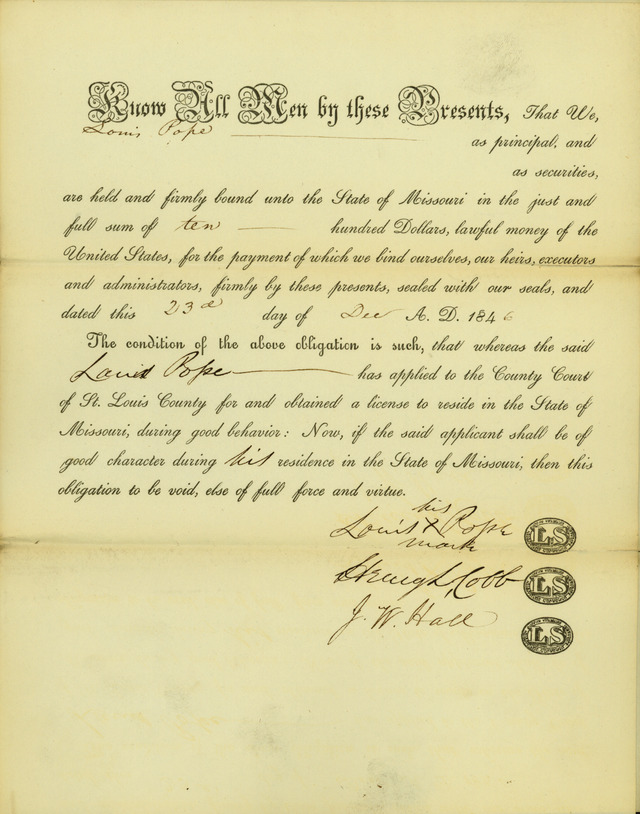 Know All Men by these Presents, That We,
Louis Pope
as principal, and
as securities,
are held and firmly bound unto the State of Missouri in the just and
full sum of ten hundred Dollars, lawful money of the
United States, for the payment of which we bind ourselves, our heirs, executors
and administrators, firmly by these presents, sealed with our seals, and
dated this 23d day of Dec A. D. 1846
The condition of the above obligation is such, that whereas the said
Louis Pope has applied to the County Court
of St. Louis County for and obtained a license to reside in the State of
Missouri, during good behavior: Now, if the said applicant shall be of
good character during his residence in the State of Missouri, then this
obligation to be void, else of full force and virtue.
his
Louis X Pope
mark
LS
Cobb
LS
J. W. Hall
LS